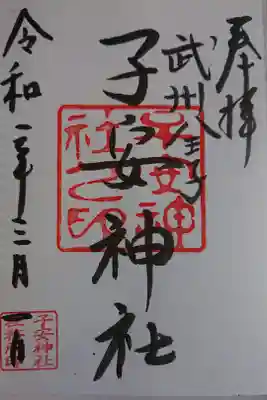 奉拝
武州八王子
子安神社
子安神社之印
令和二年三月一日
子安神社